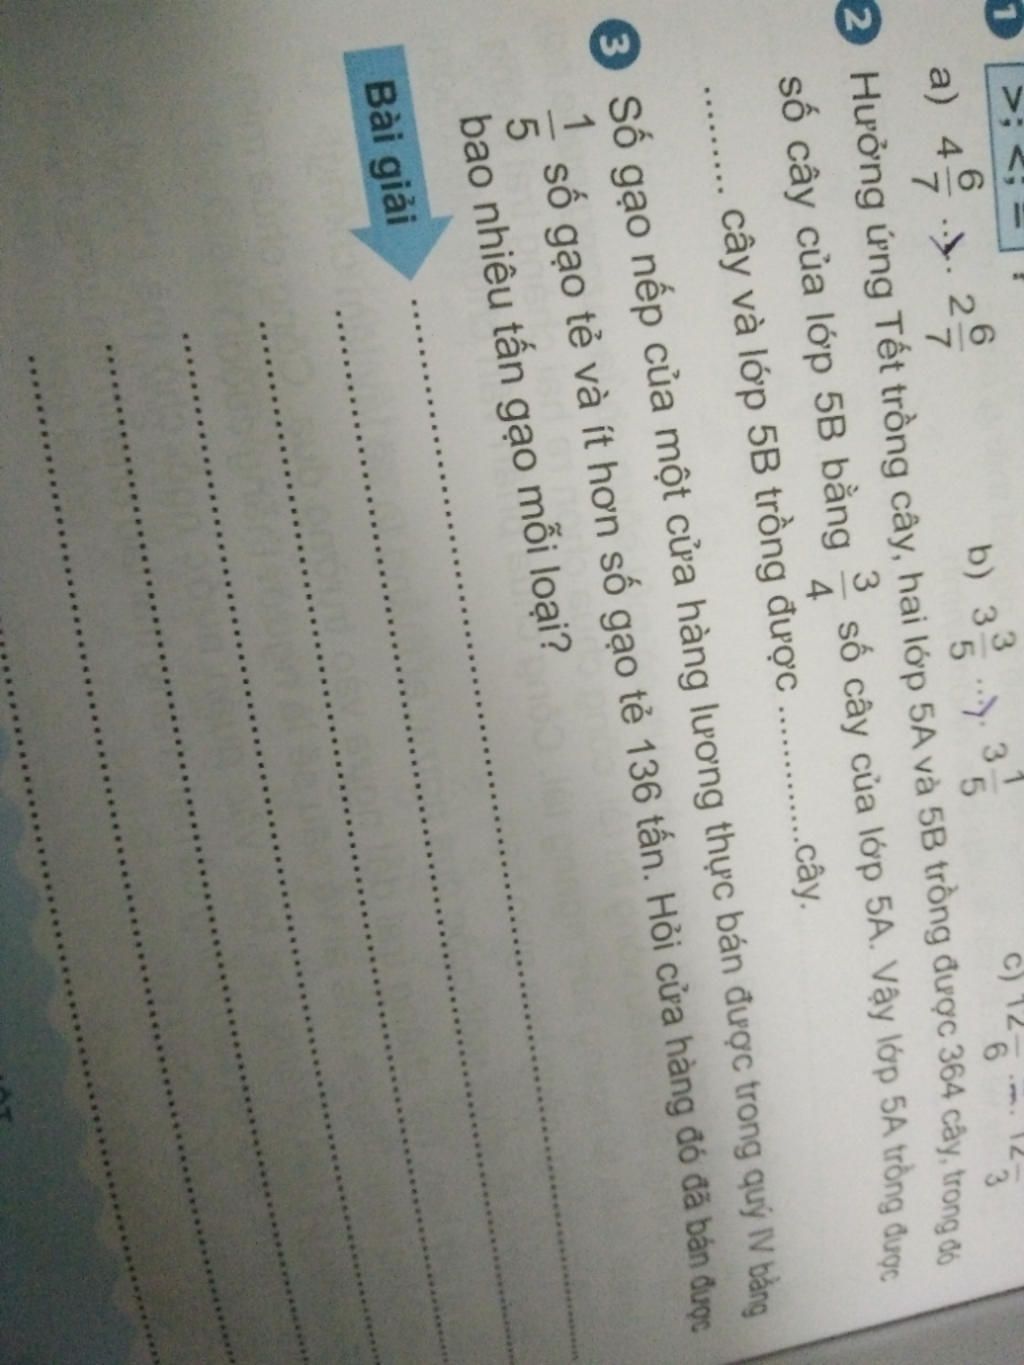 1 >; <; =
a) 4 6/7 ... 2 6/7 b) 3 3/5 ... 3 1/5 c) 12 /6 ... 12 /3
2 Hưởng ứng Tết trồng cây, hai lớp 5A và 5B trồng được 364 cây, trong đó
số cây của lớp 5B bằng 3/4 số cây của lớp 5A. Vậy lớp 5A trồng được
......... cây và lớp 5B trồng được ............cây.
3 Số gạo nếp của một cửa hàng lương thực bán được trong quý IV bằng
1/5 số gạo tẻ và ít hơn số gạo tẻ 136 tấn. Hỏi cửa hàng đó đã bán được
bao nhiêu tấn gạo mỗi loại?
Bài giải